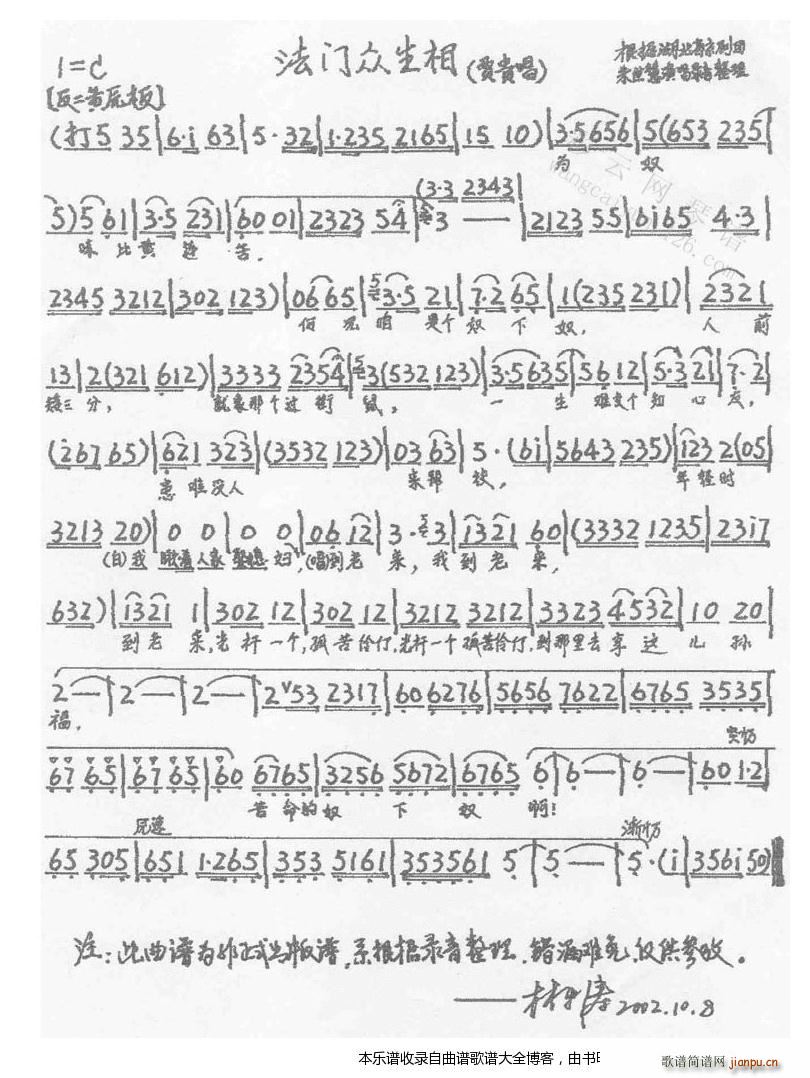 法门众生相(贾贵唱)
1=C
根据湖北省京剧团
朱世慧演唱录音整理
[反二黄原板]
(打5 35|6·i 63|5·32|1·235 2165|15 10)|3·5656|5(653 235|
为 奴
5)5 61|3·5 231|60 01|2323 54|3 — |2123 55|6i65 4·3|
(3·3 2343
味 比 黄 连 苦,
2345 3212|302 123)|06 65|3·5 21|7·2 65|1(235 231)|2321
但 是个 奴 下 奴, 人 前
13|2(321 612)|3333 2354|3(532 123)|3·5635|5612|5·3 21|7·2
矮三 分, 就象那个过 街 鼠, 一 生 难交个 知 心 友,
(2676 65)|621 323|(3532 123)|03 63|5·(6i|5643 235)|i23 2(05|
患 难没人 来帮 扶, 年轻时
3213 20)|0 0|0 0|06 12|3·3|1321 60|(3332 1235|23i7
(白)我瞅着人家娶媳妇,(唱)到老 来, 我到老 来,
632)|1321 1|302 12|302 12|3212 3212|3323 4532|10 20|
到老 来,光杆一个,孤苦伶仃,光杆一个孤苦伶仃,到那里去享这 儿 孙
2—|2—|2—|2ˇ53 2317|60 6276|5656 7622|6765 3535|
福,
突忉
67 65|67 65|60 6765|3256 5672|6765 6|6—|6—|60 1·2|
苦命的奴 下 奴 啊!
原速 渐忉
65 305|651 1·265|353 5161|353561 5|5—|5·(i|356i 50)‖
注:此曲谱为非正式出版谱,系根据录音整理,错漏难免,仅供参考。
——林 涛2002.10.8
本乐谱收录自曲谱歌谱大全博客，由书
歌谱简谱网 jianpu.cn